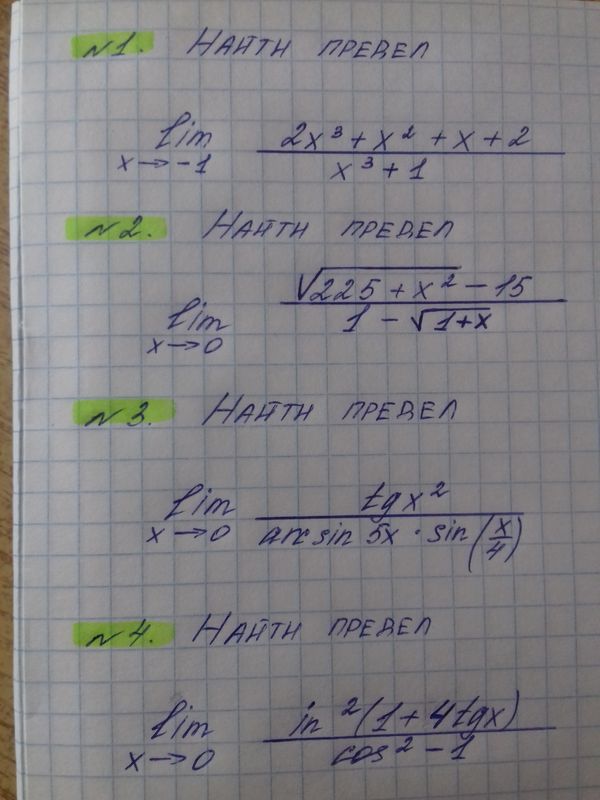 №1. Найти предел
lim x→-1 (2x³ + x² + x + 2) / (x³ + 1)
№2. Найти предел
lim x→0 (√(225 + x²) - 15) / (1 - √(1+x))
№3. Найти предел
lim x→0 tg x² / (arcsin 5x · sin(x/4))
№4. Найти предел
lim x→0 in²(1 + 4tgx) / (cos² - 1)